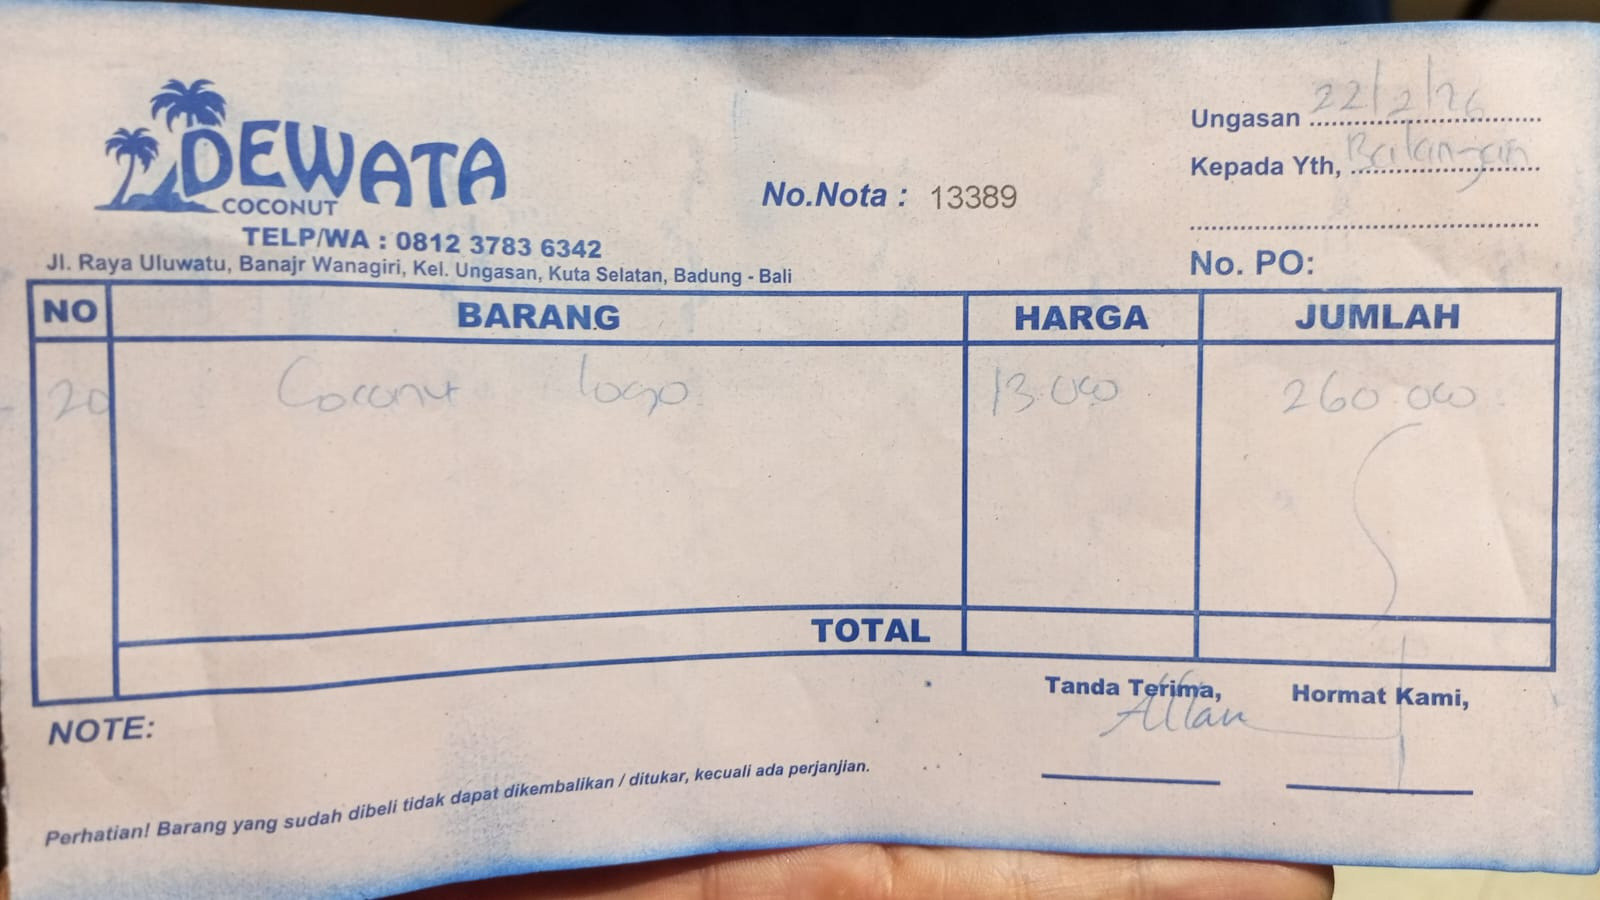 DEWATA
COCONUT
TELP/WA : 0812 3783 6342
Jl. Raya Uluwatu, Banajr Wanagiri, Kel. Ungasan, Kuta Selatan, Badung - Bali
No.Nota : 13389
Ungasan 22/2/26
Kepada Yth, Balangan
No. PO:
NO BARANG HARGA JUMLAH
20 Coconut logo 13.000 260.000
TOTAL
Tanda Terima, Hormat Kami,
Allan
NOTE:
Perhatian! Barang yang sudah dibeli tidak dapat dikembalikan / ditukar, kecuali ada perjanjian.